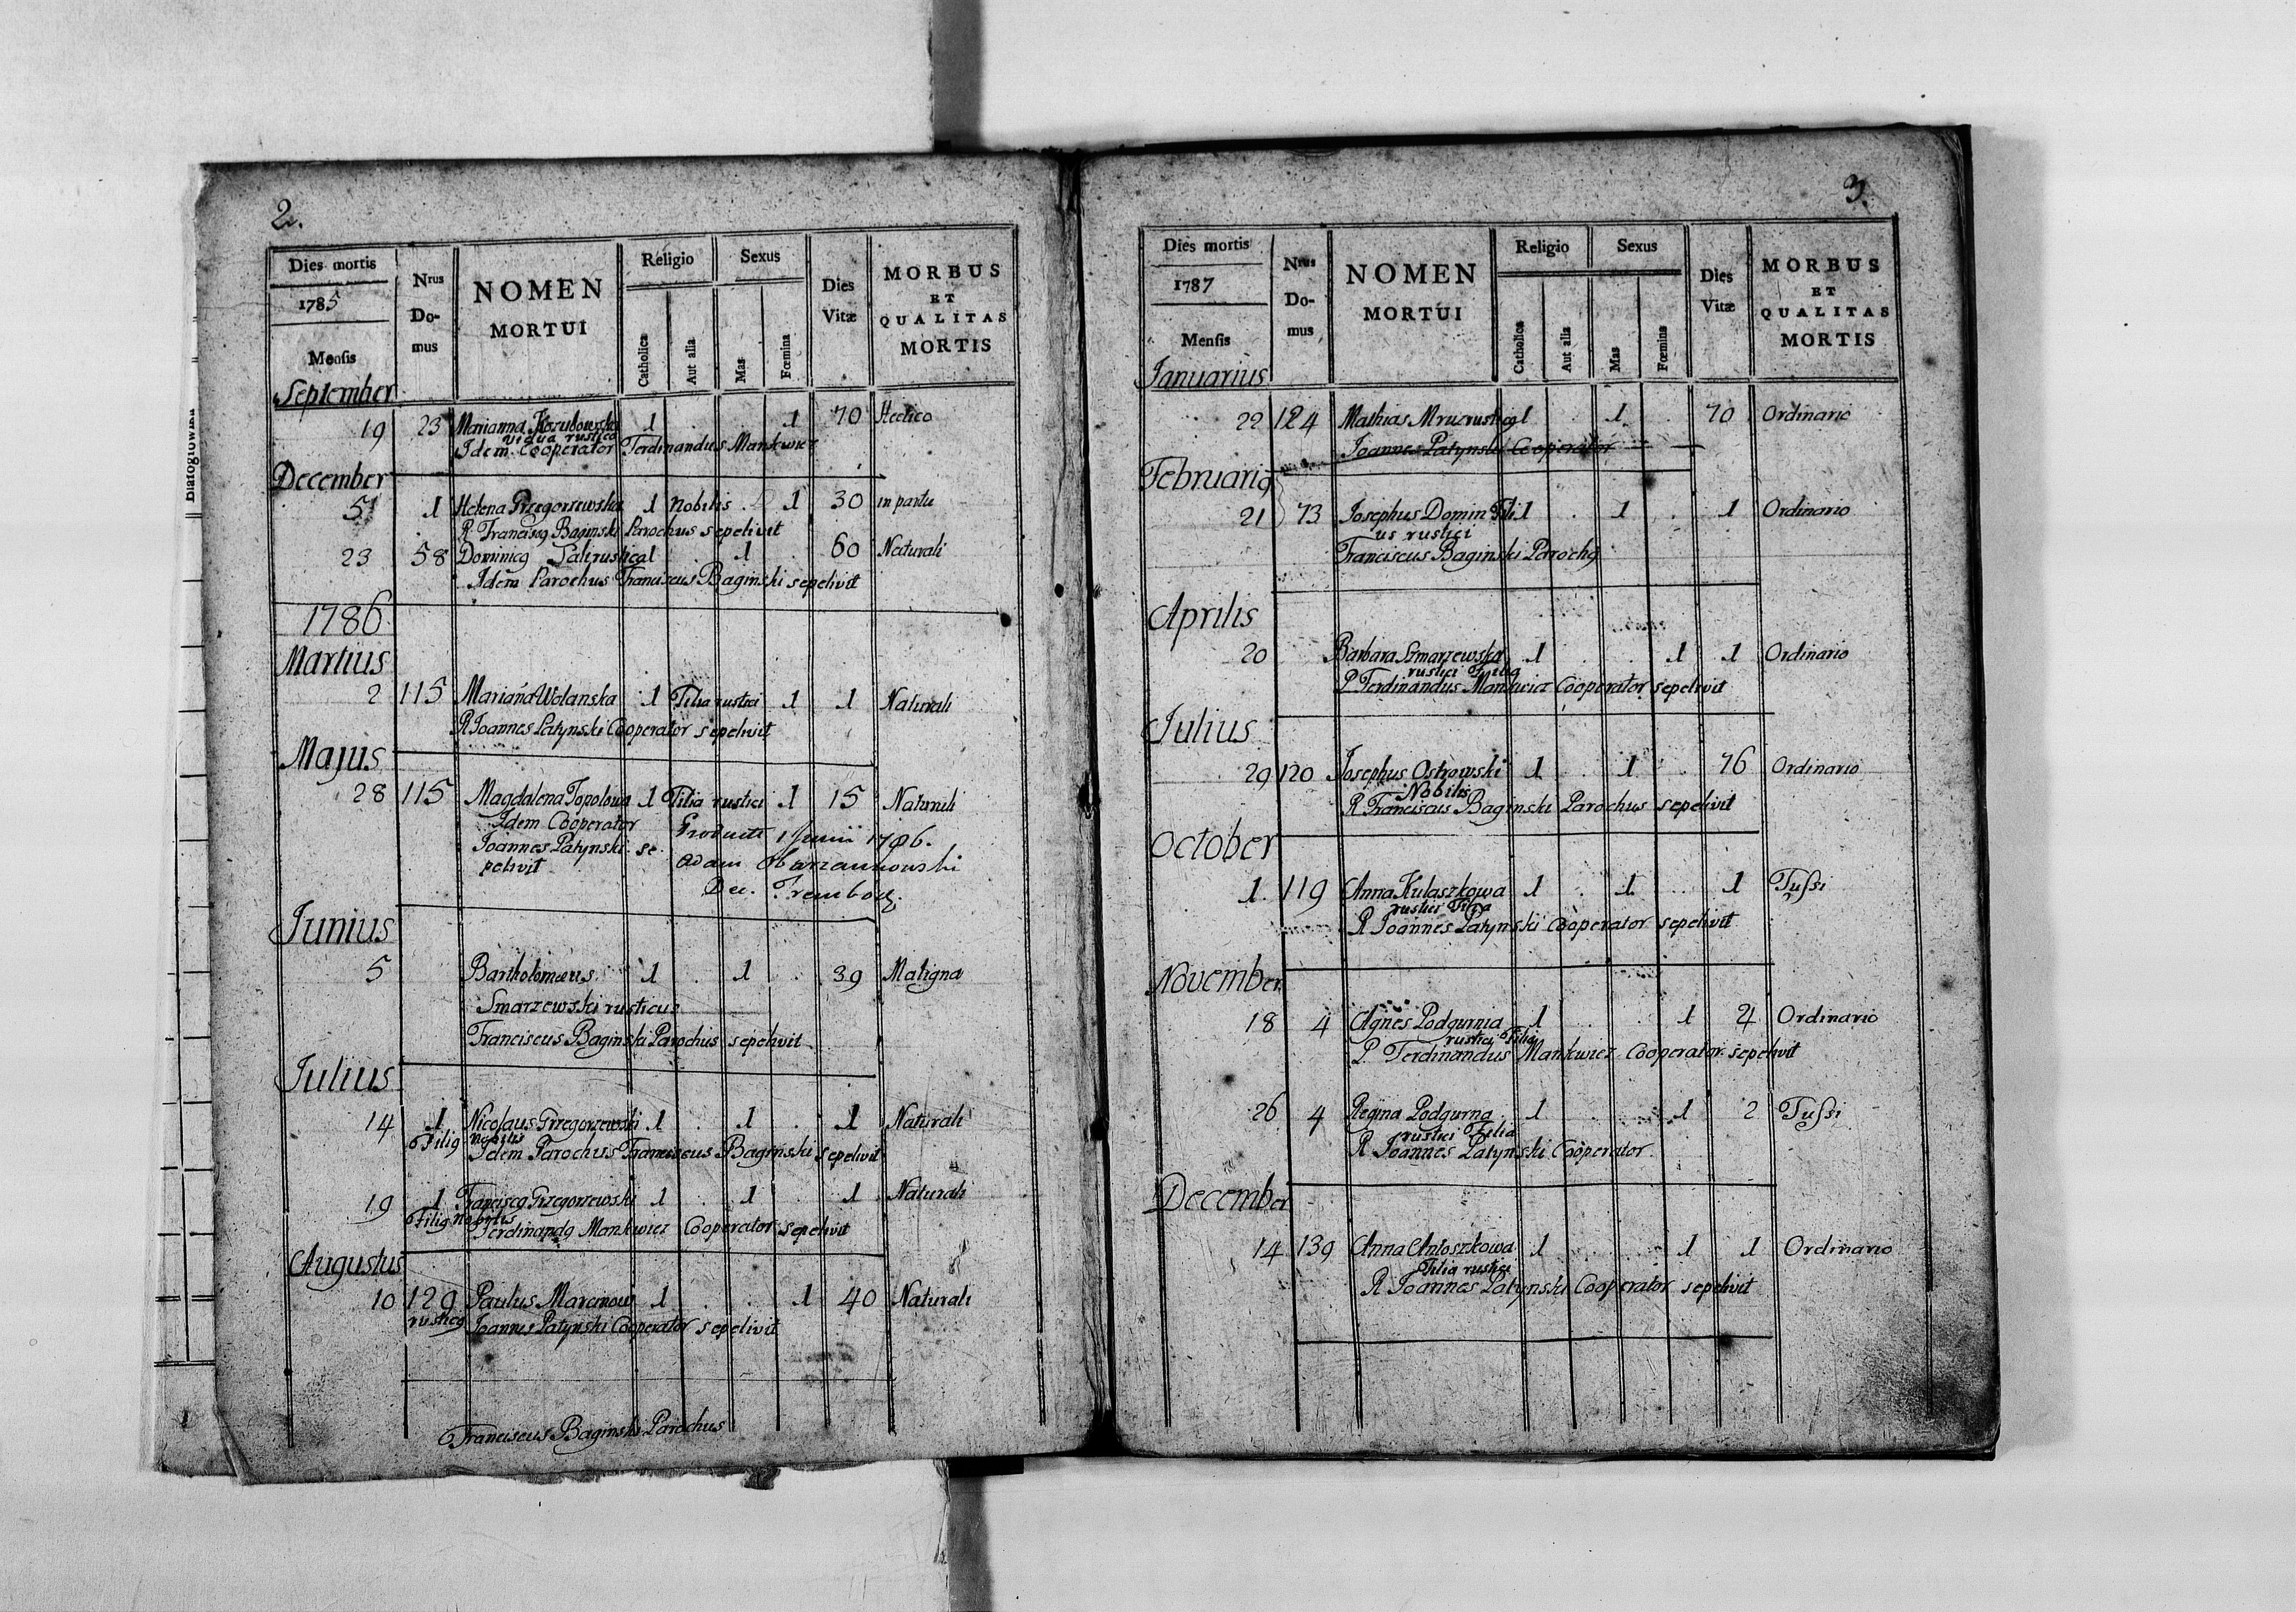 2.
Dies mortis
1785
Mensis
Nrus Domus
NOMEN MORTUI
Religio
Catholica
Aut alia
Sexus
Mas
Fœmina
Dies Vitæ
MORBUS ET QUALITAS MORTIS
September
19 23 Marianna Kozubowska 1 . . 1 70 Hectico
vidua rustica
Idem Cooperator Ferdinandus Mankwicz
December
5 1 Helena Grzegorzewska 1 Nobilis . 1 30 in partu
R. Franciscq Baginski Parochus sepelivit
23 58 Dominicq rusticq 1 . 1 . 60 Naturali
Idem Parochus Franciscus Baginski sepelivit
1786
Martius
2 115 Mariana Wolanska 1 Filia rustici 1 1 Naturali
R Joannes Patynski Cooperator sepelivit
Majus
28 115 Magdalena Topolowa 1 Filia rustici 1 15 Naturali
Idem Cooperator
Joannes Patynski se
pelivit
Producti 1 Junii 1786.
Adam Obarzankowski
Dec. Trembow.
Junius
5 Bartholomæus 1 . 1 . 39 Maligna
Smarzewski rusticus
Franciscus Baginski Parochus sepelivit
Julius
14 1 Nicolaus Grzegorzewski 1 . 1 . 1 Naturali
Filiq Nobilis
Idem Parochus Franciscus Baginski sepelivit
19 1 Franciscq Grzegorzewski 1 . 1 . 1 Naturali
Filiq Nobilis
Ferdinandq Mankwicz Cooperator sepelivit
Augustus
10 129 Paulus Marcinow 1 . . 1 40 Naturali
rusticq Joannes Patynski Cooperator sepelivit
Franciscus Baginski Parochus
3.
Dies mortis
1787
Mensis
Nrus Domus
NOMEN MORTUI
Religio
Catholica
Aut alia
Sexus
Mas
Fœmina
Dies Vitæ
MORBUS ET QUALITAS MORTIS
Januarius
22 124 Mathias Mruz rusticq 1 . 1 . 70 Ordinario
Joannes Patynski Cooperator
Februariq
21 73 Josephus Domin Fili 1 . 1 . 1 Ordinario
us rustici
Franciscus Baginski Parochq
Aprilis
20 Barbara Smarzewska 1 . . 1 1 Ordinario
rustici Filia
P Ferdinandus Mankwicz Cooperator sepelivit
Julius
29 120 Josephus Ostrowski 1 . 1 . 76 Ordinario
Nobilis
R Franciscus Baginski Parochus sepelivit
October
1. 119 Anna Kulaszkowa 1 . 1 . 1 Tussi
rustici Filia
R Joannes Patynski Cooperator sepelivit
November
18 4 Agnes Podgurnia 1 . . 1 4 Ordinario
rustici Filia
P. Ferdinandus Mankwicz Cooperator sepelivit
26 4 Regina Podgurna 1 . . 1 2 Tussi
rustici Filia
R Joannes Patynski Cooperator
December
14 139 Anna Antoszkowa 1 . . 1 1 Ordinario
Filia rustici
R Joannes Patynski Cooperator sepelivit